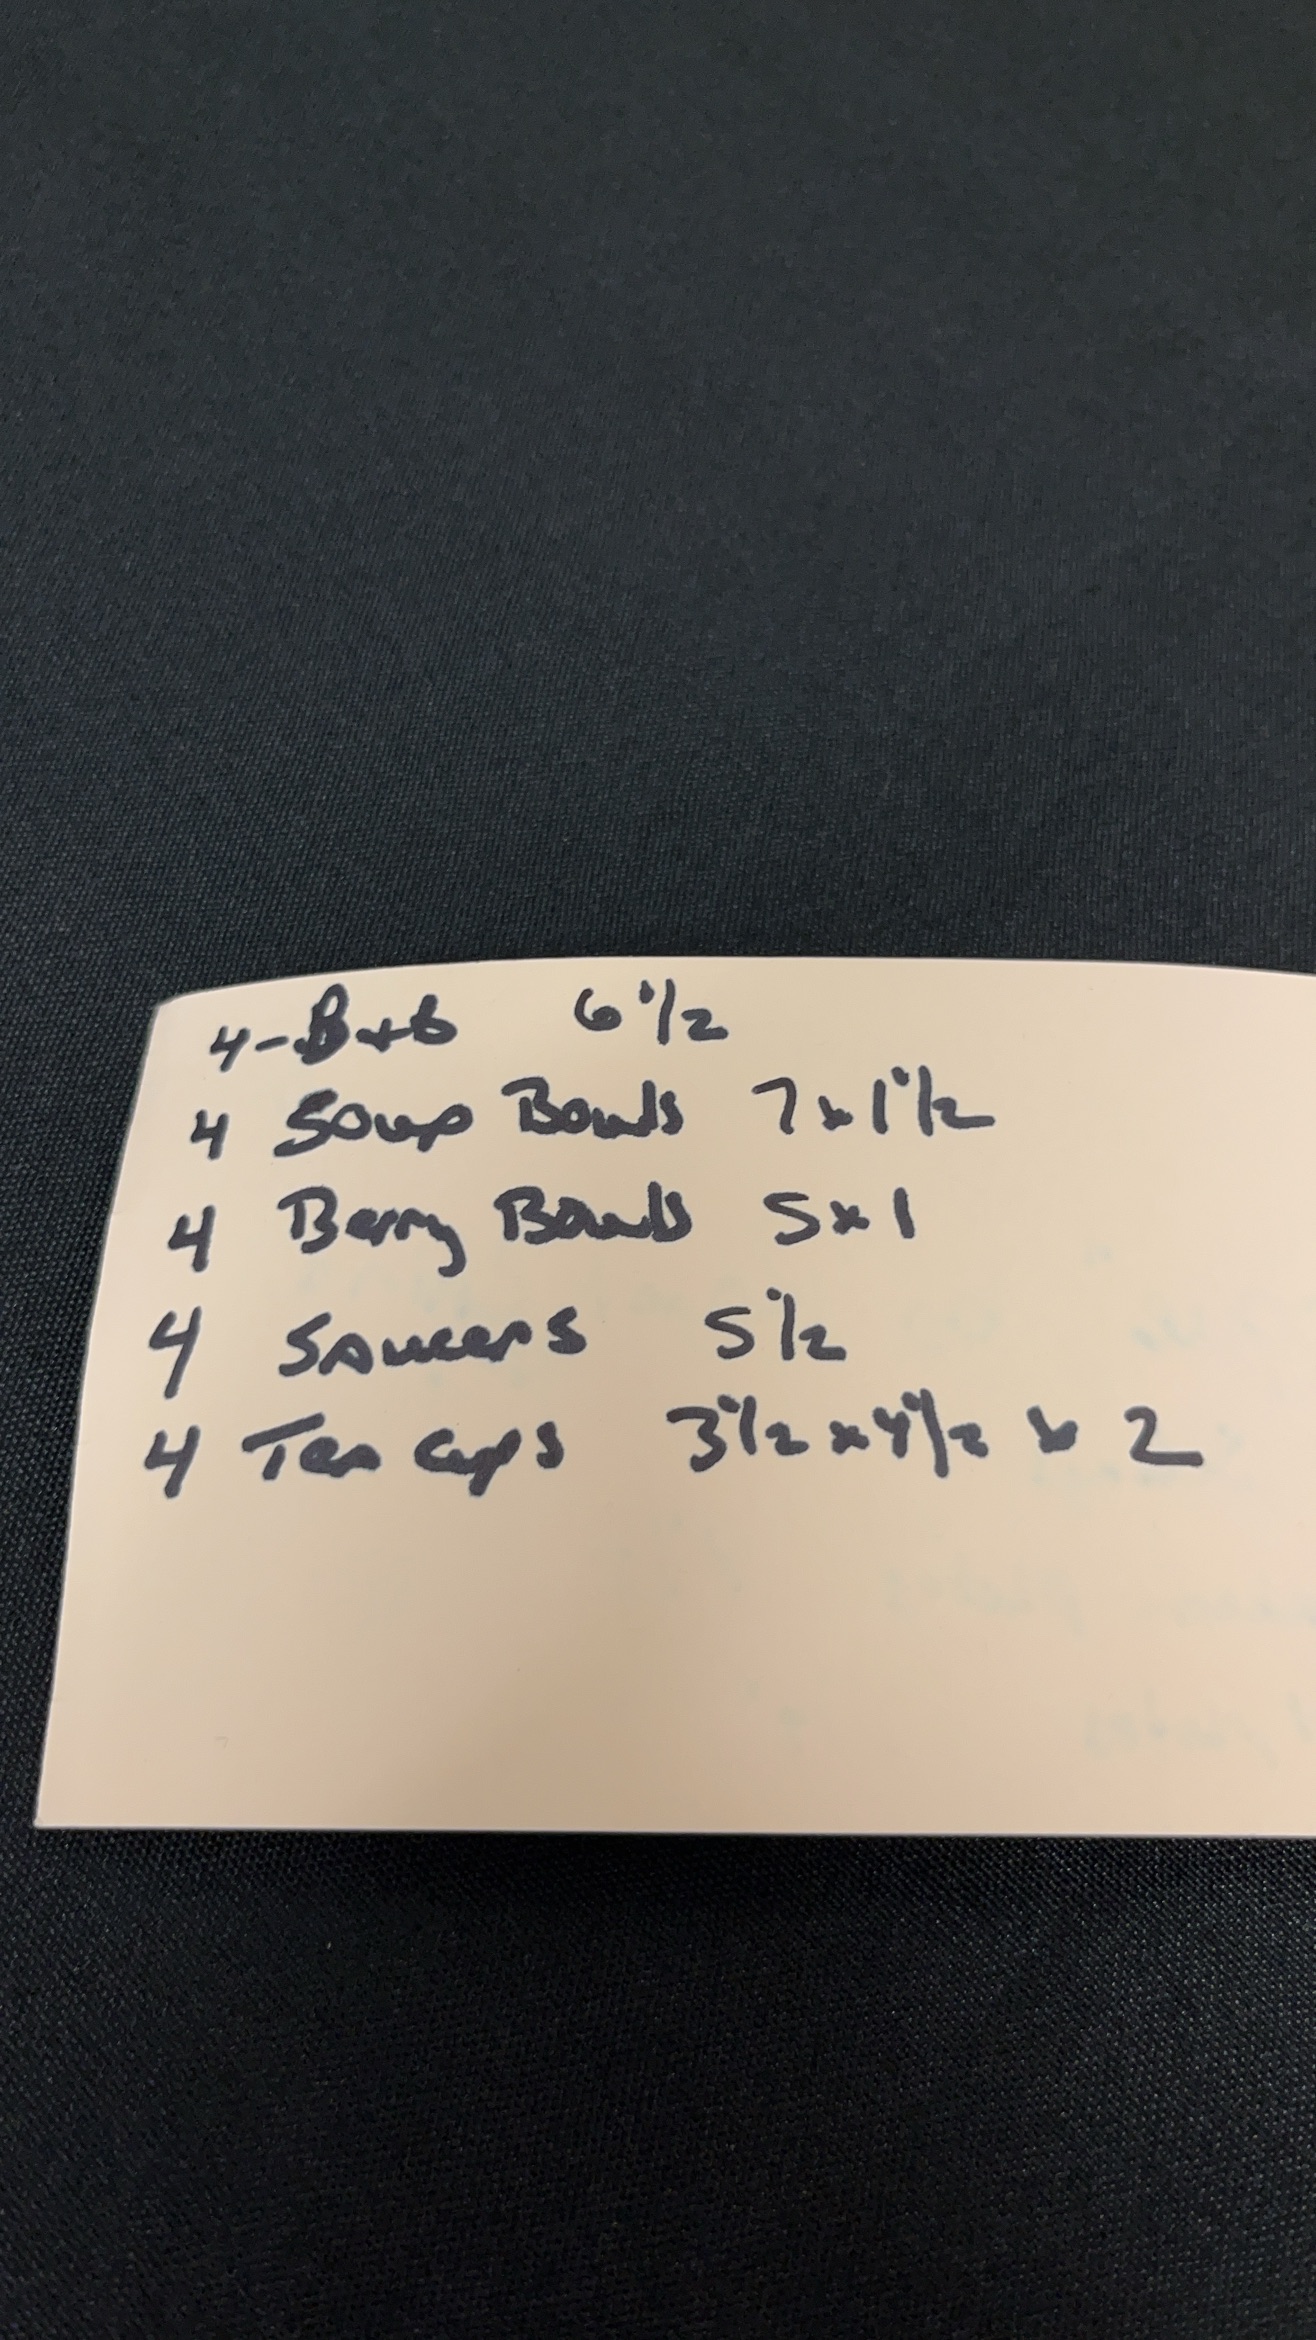 4-B+b 6 1/2
4 Soup Bowls 7x1 1/2
4 Berry Bowls 5x1
4 Saucers 5 1/2
4 Tea Cups 3 1/2 x 4 1/2 x 2